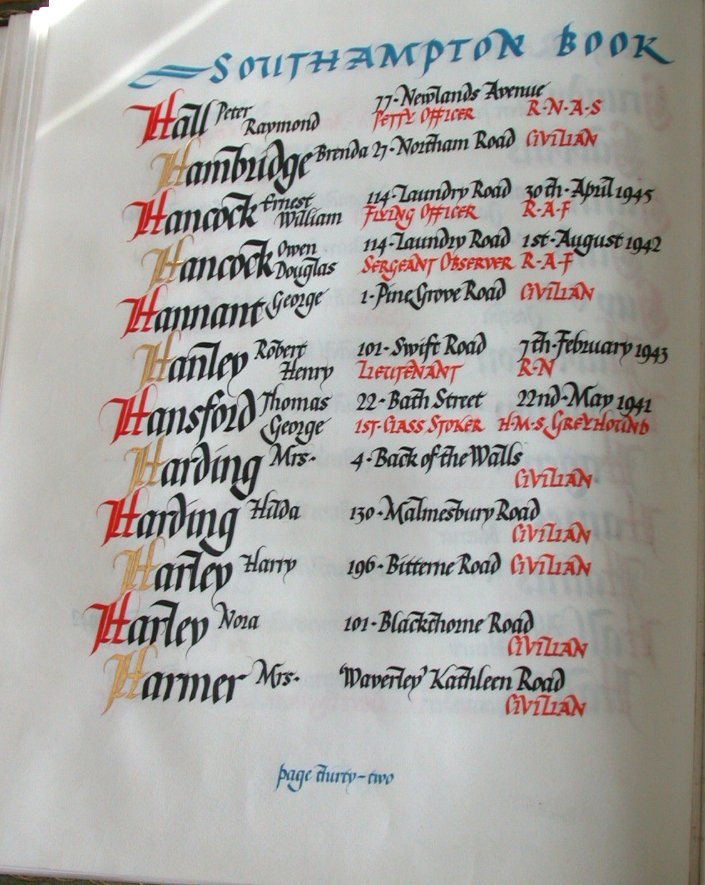 SOUTHAMPTON BOOK
Hall Peter Raymond 77·Newlands Avenue
PETTY OFFICER R·N·A·S
Hambridge Brenda 27·Northam Road CIVILIAN
Hancock Ernest William 114·Laundry Road 30th·April 1945
FLYING OFFICER R·A·F
Hancock Owen Douglas 114·Laundry Road 1st·August 1942
SERGEANT OBSERVER R·A·F
Hannant George 1·Pine Grove Road CIVILIAN
Hanley Robert Henry 101·Swift Road 7th·February 1943
LIEUTENANT R·N
Hansford Thomas George 22·Bath Street 22nd·May 1941
1ST·CLASS STOKER H·M·S GREYHOUND
Harding Mrs· 4·Back of the Walls
CIVILIAN
Harding Hilda 130·Malmesbury Road
CIVILIAN
Harley Harry 196·Bitterne Road CIVILIAN
Harley Nora 101·Blackthorne Road
CIVILIAN
Harmer Mrs· 'Waverley' Kathleen Road
CIVILIAN
page thirty-two